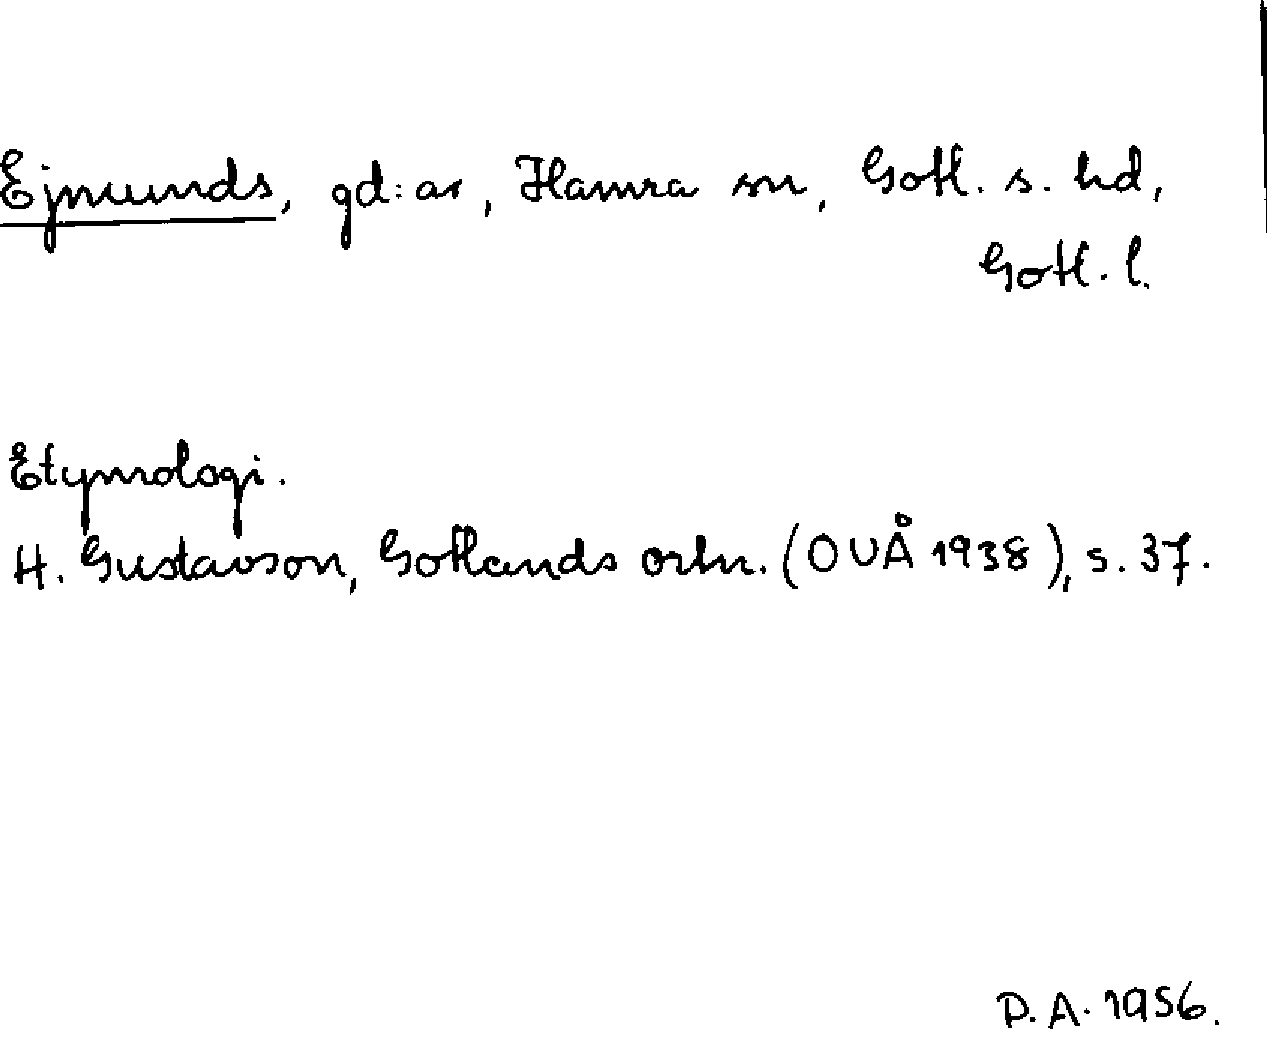 Ejmunds, gd:ar, Hamra sn, Gotl. s. hd,
Gotl. l.
Etymologi.
H. Gustavson, Gotlands ortn. (OUÅ 1938), s. 37.
P.A. 1956.